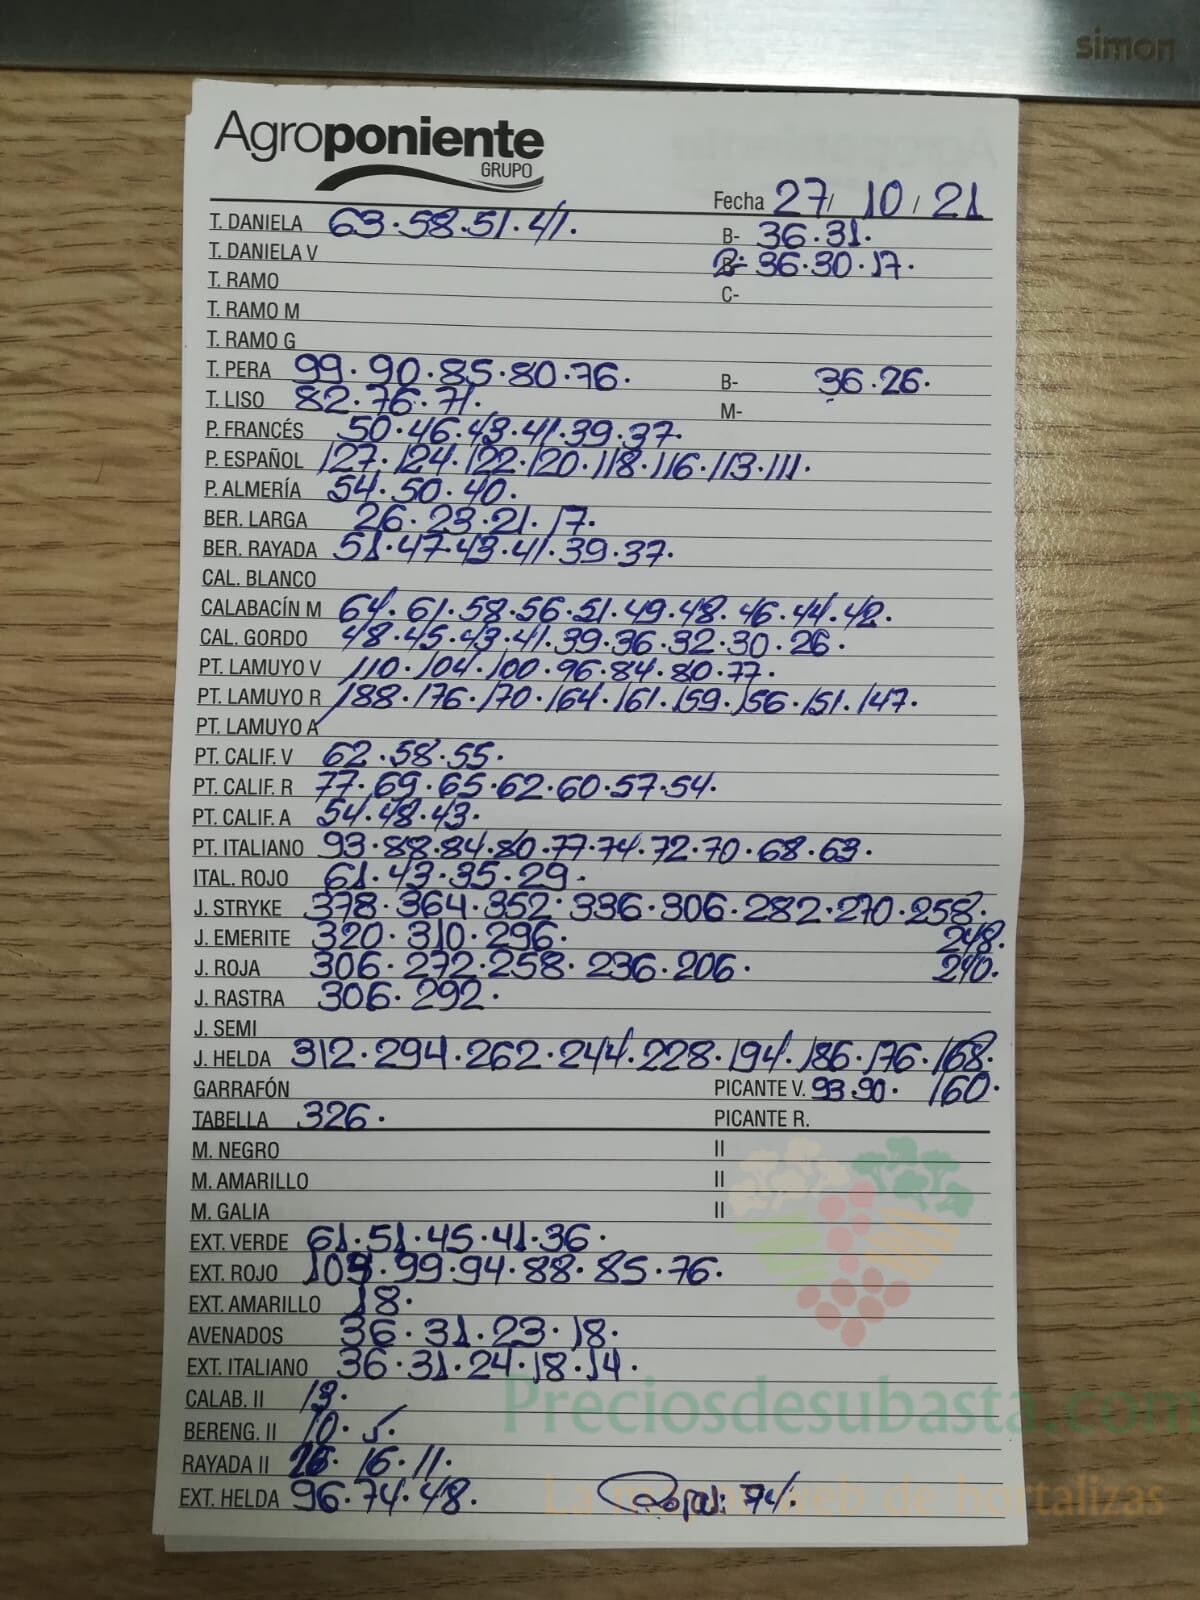 simon
Agroponiente
GRUPO
Fecha 27/ 10 / 21
T. DANIELA 63·58·51·41· B- 36·31·
T. DANIELA V 2- 36·30·17·
T. RAMO C-
T. RAMO M
T. RAMO G
T. PERA 99·90·85·80·76· B- 36·26·
T. LISO 82·76·71· M-
P. FRANCÉS 50·46·43·41·39·37·
P. ESPAÑOL 127·124·122·120·118·116·113·111·
P. ALMERÍA 54·50·40·
BER. LARGA 26·23·21·17·
BER. RAYADA 51·47·43·41·39·37·
CAL. BLANCO
CALABACÍN M 64·61·58·56·51·49·48·46·44·42·
CAL. GORDO 48·45·43·41·39·36·32·30·26·
PT. LAMUYO V 110·104·100·96·84·80·77·
PT. LAMUYO R 188·176·170·164·161·159·156·151·147·
PT. LAMUYO A
PT. CALIF. V 62·58·55·
PT. CALIF. R 77·69·65·62·60·57·54·
PT. CALIF. A 54·48·43·
PT. ITALIANO 93·88·84·80·77·74·72·70·68·63·
ITAL. ROJO 61·43·35·29·
J. STRYKE 378·364·352·336·306·282·270·258·
J. EMERITE 320·310·296· 248·
J. ROJA 306·272·258·236·206· 240·
J. RASTRA 306·292·
J. SEMI
J. HELDA 312·294·262·244·228·194·186·176·168·
GARRAFÓN PICANTE V. 93·90· 160·
TABELLA 326· PICANTE R.
M. NEGRO II
M. AMARILLO II
M. GALIA II
EXT. VERDE 61·51·45·41·36·
EXT. ROJO ·99·94·88·85·76·
EXT. AMARILLO 18·
AVENADOS 36·31·23·18·
EXT. ITALIANO 36·31·24·18·14·
CALAB. II 13·
Preciosdesubasta.com
BERENG. II 10·5·
RAYADA II 16·11·
EXT. HELDA 96·74·48· 74·
La mayor web de hortalizas